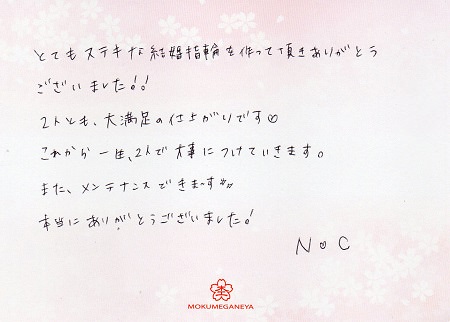 とてもステキな結婚指輪を作って頂きありがとう
ございました!!
2人とも、大満足の仕上がりです♡
これから一生、2人で大事につけていきます。
また、メンテナンスできまーす
本当にありがとうございました!
N♡C
MOKUMEGANEYA